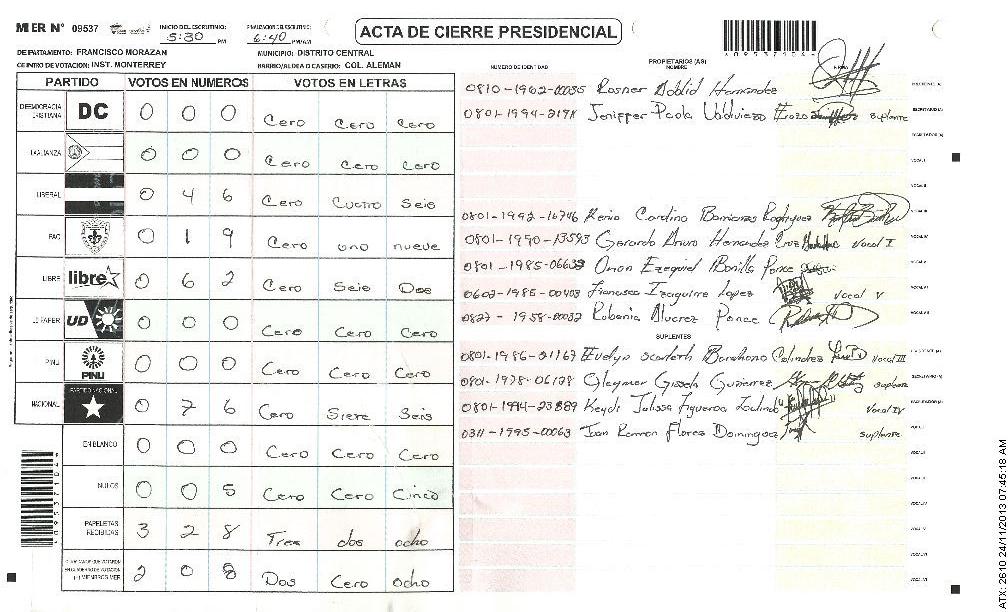 MER N° 09537 INICIO DEL ESCRUTINIO: 5:30 PM FINALIZACION DEL ESCRUTINIO: 6:40 PM/AM ACTA DE CIERRE PRESIDENCIAL
DEPARTAMENTO: FRANCISCO MORAZAN MUNICIPIO: DISTRITO CENTRAL
CENTRO DE VOTACION: INST. MONTERREY BARRIO/ALDEA O CASERIO: COL. ALEMAN
NUMERO DE IDENTIDAD PROPIETARIOS (AS) NOMBRE FIRMA
PARTIDO VOTOS EN NUMEROS VOTOS EN LETRAS
DEMOCRACIA CRISTIANA DC 0 0 0 Cero Cero Cero
ALIANZA 0 0 0 Cero Cero Cero
LIBERAL 0 4 6 Cero Cuatro Seis
PAC 0 1 9 Cero uno nueve
LIBRE libre 0 6 2 Cero Seis Dos
UD FAPER UD 0 0 0 Cero Cero Cero
PINU PINU 0 0 0 Cero Cero Cero
NACIONAL PARTIDO NACIONAL 0 7 6 Cero Siete Seis
EN BLANCO 0 0 0 Cero Cero Cero
NULOS 0 0 5 Cero Cero Cinco
PAPELETAS RECIBIDAS 3 2 8 Tres dos ocho
2 0 8 Dos Cero ocho
0810-1962-00035 Rosner Hernandez
0801-1994- Jeniffer Paola Valdiviezo suplente
0801-1992-16746 Kenia Carolina Rodriguez
0801-1990-13593 Gerardo Arturo Hernandez Cruz Vocal I
0801-1985-06633 Orian Ezequiel Bonilla Ponce
0602-1985-00403 Francisco Izaguirre Lopez Vocal V
0827-1958-00032 Robania Alvarez Ponce
SUPLENTES
0801-1986-21167 Evelyn Scarleth Barahona Vocal III
0801-1978-06128 Gissela Gutierrez suplente
0801-1994-23889 Keydi Julissa Figueroa Vocal IV
0311-1995-00063 Juan Ramon Flores Dominguez suplente
ATX: 2610 24/11/2013 07:45:18 AM